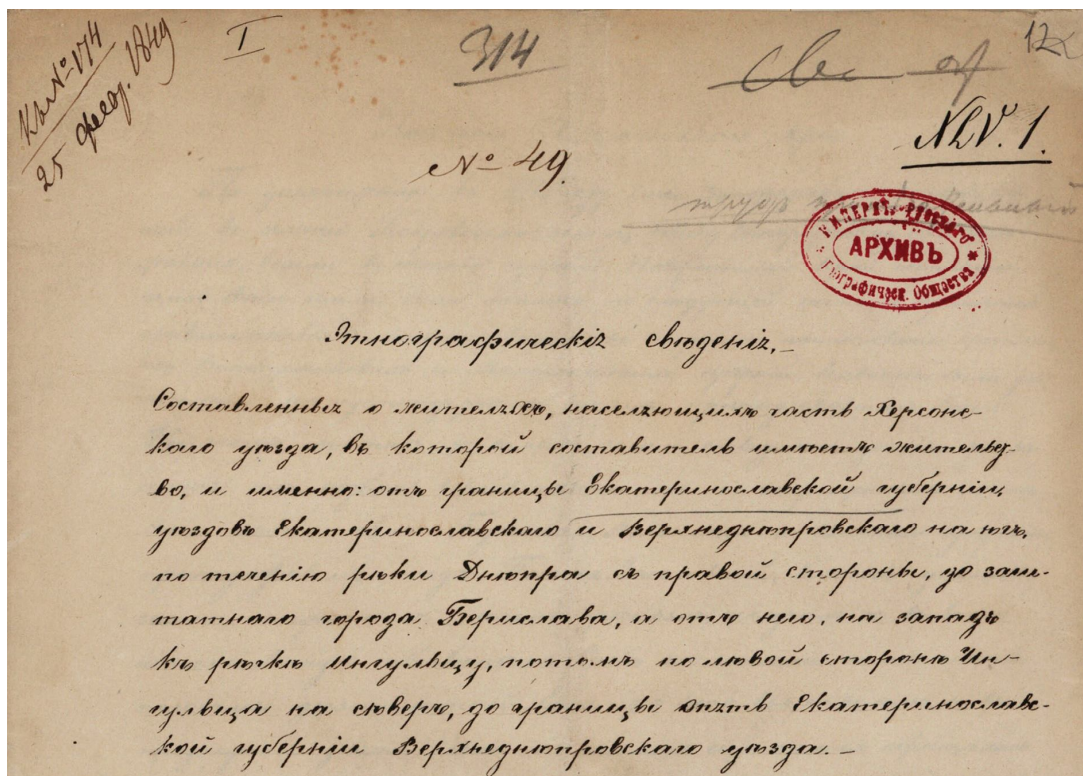 Къ № 174
25 февр. 1849
I
314
12
№ 49.
XLV. 1.
трудъ
ИМПЕРАТ. РУССКАГО
АРХИВЪ
Географическ. Общества
Этнографическія свѣденія.–
Составленныя о жителяхъ, населяющихъ часть Херсон-
скаго уѣзда, въ которой составитель имѣетъ жительст-
во, и именно: отъ границы Екатеринославской губерніи,
уѣздовъ Екатеринославскаго и Верхнеднѣпровскаго на югъ,
по теченію рѣки Днѣпра съ правой стороны, до заш-
татнаго города Берислава, а отъ него, на западъ
къ рѣчкѣ Ингульцу, потомъ по лѣвой сторонѣ Ин-
гульца на сѣверъ, до границы опять Екатеринославс-
кой губерніи Верхнеднѣпровскаго уѣзда.–